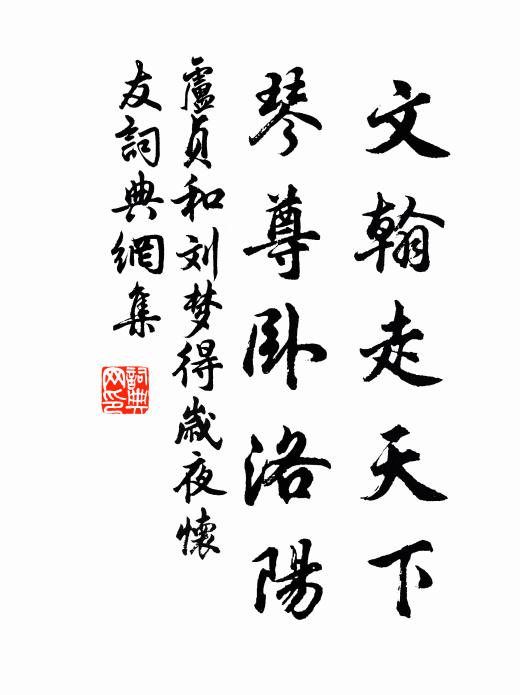 文翰走天下
琴尊卧洛陽
盧貞和刘梦得歲夜懷
友詞典網集
詞典
网印